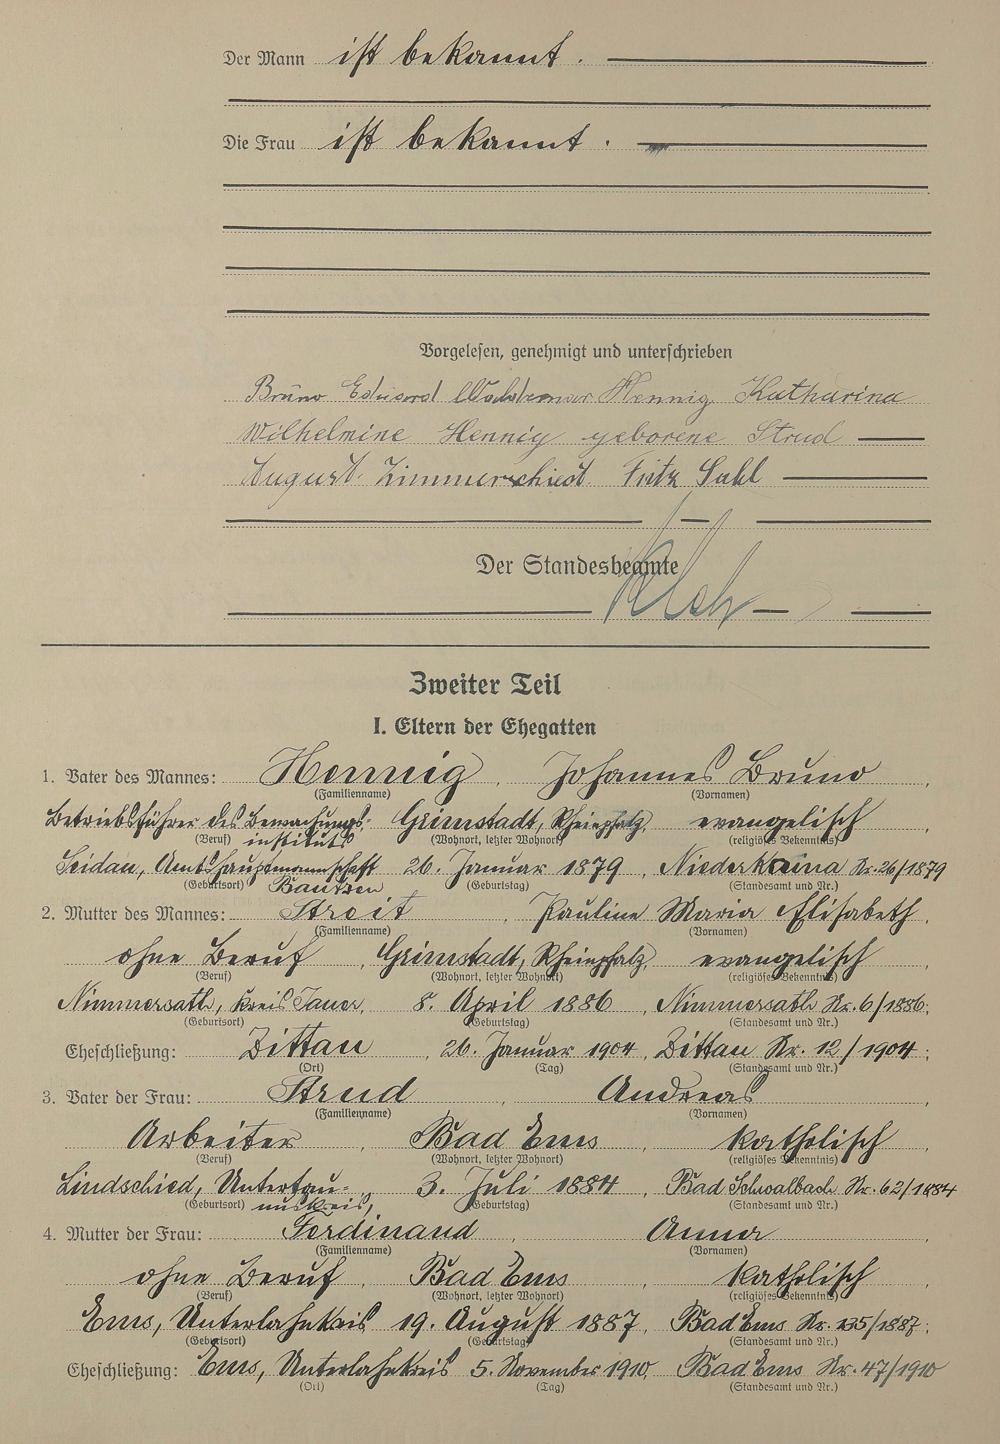 Der Mann ist bekannt.
Die Frau ist bekannt.
Vorgelesen, genehmigt und unterschrieben
Bruno Eduard Woldemar Hennig Katharina
Wilhelmine Hennig geborene Strud
August Zimmerschied Fritz Sahl
Der Standesbeamte
Zweiter Teil
I. Eltern der Ehegatten
1. Vater des Mannes: Hennig, Johannes Bruno,
(Familienname) (Vornamen)
Betriebsführer des Bewachungs- Grünstadt, Rheinpfalz, evangelisch
(Beruf) instituts (Wohnort, letzter Wohnort) (religiöses Bekenntnis)
Seidau, Amtshauptmannschaft 26. Januar 1879, Niederkaina Nr. 26/1879
(Geburtsort) Bautzen (Geburtstag) (Standesamt und Nr.)
2. Mutter des Mannes: Streit, Pauline Maria Elisabeth,
(Familienname) (Vornamen)
ohne Beruf, Grünstadt, Rheinpfalz, evangelisch
(Beruf) (Wohnort, letzter Wohnort) (religiöses Bekenntnis)
Nimmersath, Kreis Jauer, 8. April 1886, Nimmersath Nr. 6/1886;
(Geburtsort) (Geburtstag) (Standesamt und Nr.)
Eheschließung: Zittau, 26. Januar 1904, Zittau Nr. 12/1904;
(Ort) (Tag) (Standesamt und Nr.)
3. Vater der Frau: Strud, Andreas,
(Familienname) (Vornamen)
Arbeiter, Bad Ems, katholisch
(Beruf) (Wohnort, letzter Wohnort) (religiöses Bekenntnis)
Lindschied, Untertau- 3. Juli 1884, Bad Schwalbach Nr. 62/1884
(Geburtsort) nuskreis, (Geburtstag) (Standesamt und Nr.)
4. Mutter der Frau: Ferdinand, Anna,
(Familienname) (Vornamen)
ohne Beruf, Bad Ems, katholisch
(Beruf) (Wohnort, letzter Wohnort) (religiöses Bekenntnis)
Ems, Unterlahnkreis 19. August 1887, Bad Ems Nr. 135/1887;
(Geburtsort) (Geburtstag) (Standesamt und Nr.)
Eheschließung: Ems, Unterlahnkreis 5. November 1910, Bad Ems Nr. 47/1910
(Ort) (Tag) (Standesamt und Nr.)